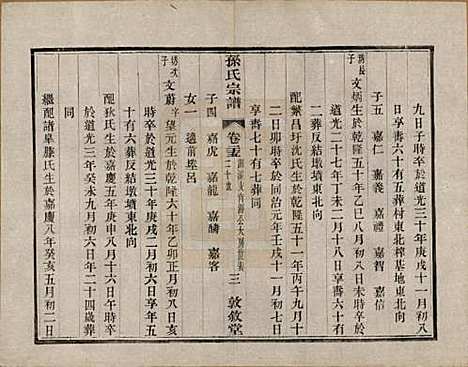 九日子時卒於道光三十年庚戌十一月初八
日享壽六十有五葬村東北榨基地東北向
子五 嘉仁 嘉義 嘉禮 嘉智 嘉信
錫長子 文炳生於乾隆五十年乙巳八月初八日未時卒於
道光二十七年丁未二月十八日享壽六十有
二葬反結墩東北向
配繁昌圩沈氏生於乾隆五十一年丙午九月十
二日卯時卒於同治元年壬戌十一月初七日
享壽七十有七葬同
孫氏宗譜
卷 三 敦敘堂
子四 嘉虎 嘉龍 嘉麟 嘉客
女一 適前埂呂
錫次子 文蔚字望元生於乾隆六十年乙卯正月初八日亥
時卒於道光三十年庚戌二月初六日享年五
十有六葬反結墩墳東北向
配狄氏生於嘉慶五年庚申八月十六日午時卒
於道光三年癸未九月初六日年二十四歲葬
同
繼配譜阜滕氏生於嘉慶八年癸亥五月初二日